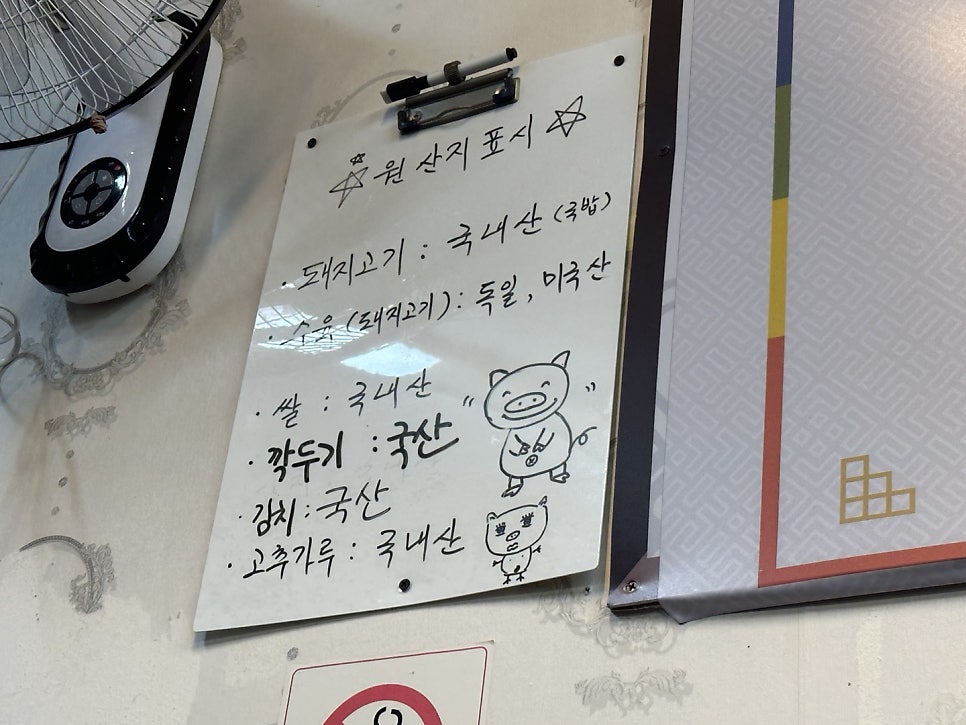 원산지 표시
· 돼지고기 : 국내산 (국밥)
· 수육 (돼지고기) : 독일, 미국산
· 쌀 : 국내산
· 깍두기 : 국산
· 김치 : 국산
· 고추가루 : 국내산